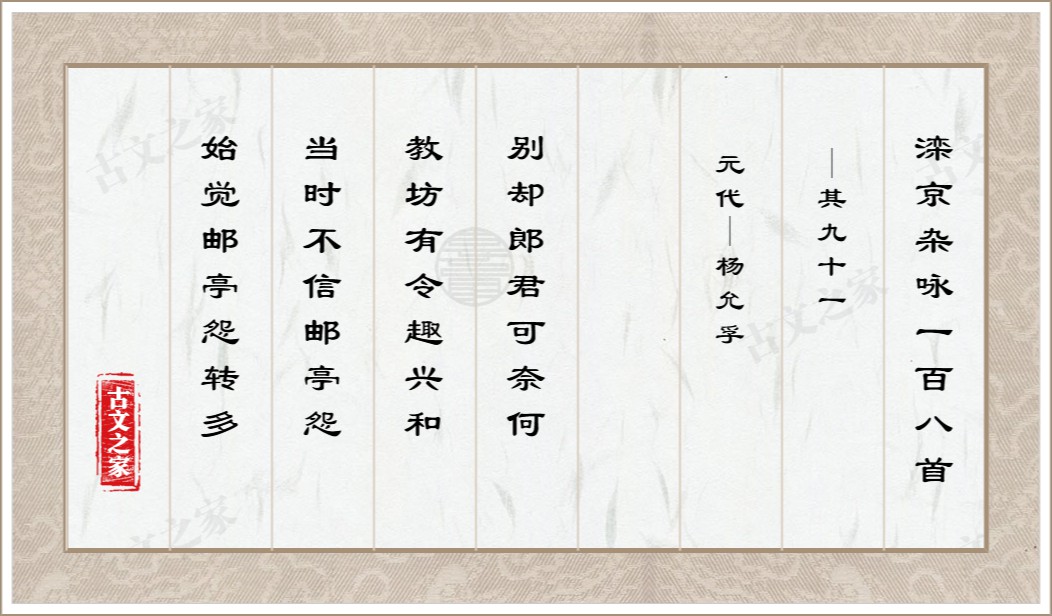 滦京杂咏一百八首
—其九十一
元代—杨允孚
别却郎君可奈何
教坊有令趣兴和
当时不信邮亭怨
始觉邮亭怨转多
古文之家
古文之家
古文之家
古文之家